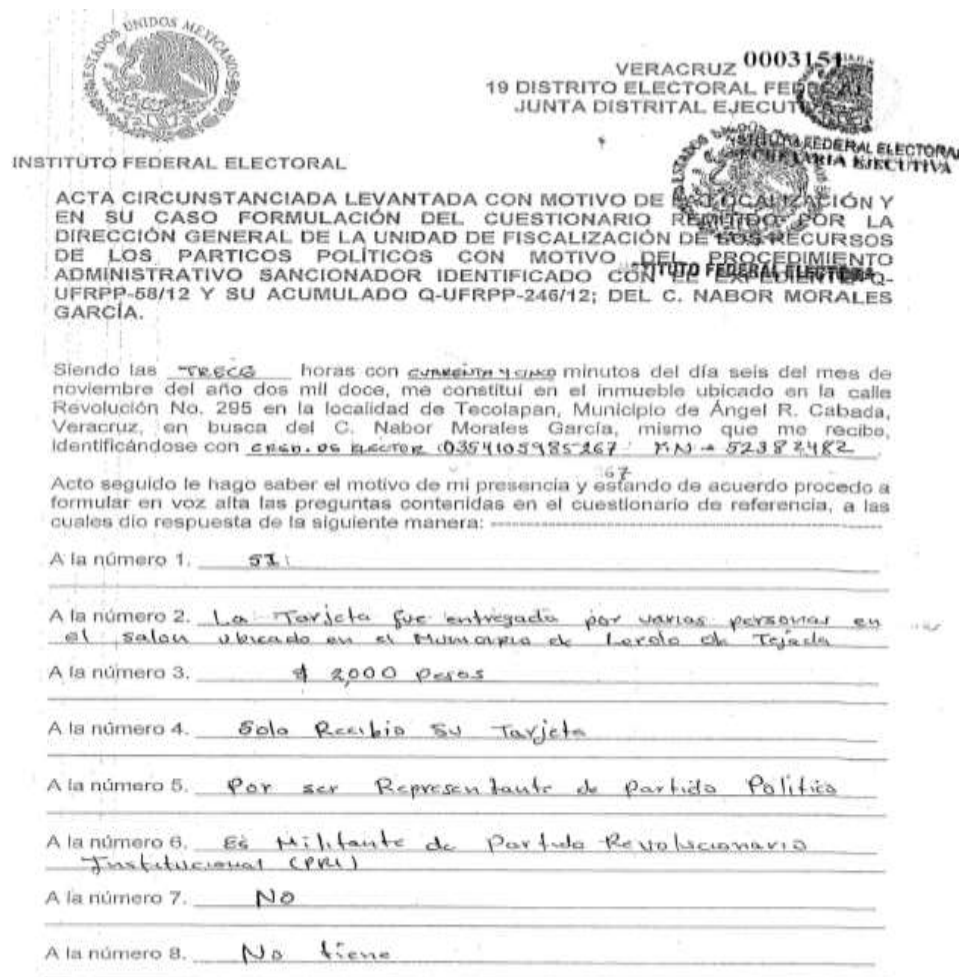 ESTADOS UNIDOS MEXICANOS
VERACRUZ 0003151
19 DISTRITO ELECTORAL FEDERAL
JUNTA DISTRITAL EJECUTIVA
INSTITUTO FEDERAL ELECTORAL
INSTITUTO FEDERAL ELECTORAL
SECRETARIA EJECUTIVA
ACTA CIRCUNSTANCIADA LEVANTADA CON MOTIVO DE LA LOCALIZACIÓN Y
EN SU CASO FORMULACIÓN DEL CUESTIONARIO REMITIDO POR LA
DIRECCIÓN GENERAL DE LA UNIDAD DE FISCALIZACIÓN DE LOS RECURSOS
DE LOS PARTICOS POLÍTICOS CON MOTIVO DEL PROCEDIMIENTO
ADMINISTRATIVO SANCIONADOR IDENTIFICADO CON EL EXPEDIENTE Q-
INSTITUTO FEDERAL ELECTORAL
UFRPP-58/12 Y SU ACUMULADO Q-UFRPP-246/12; DEL C. NABOR MORALES
GARCÍA.
Siendo las TRECE horas con CUARENTA Y CINCO minutos del día seis del mes de
noviembre del año dos mil doce, me constituí en el inmueble ubicado en la calle
Revolución No. 295 en la localidad de Tecolapan, Municipio de Ángel R. Cabada,
Veracruz, en busca del C. Nabor Morales García, mismo que me recibe,
identificándose con CRED. DE ELECTOR 0354105985267 52382482
67
Acto seguido le hago saber el motivo de mi presencia y estando de acuerdo procedo a
formular en voz alta las preguntas contenidas en el cuestionario de referencia, a las
cuales dio respuesta de la siguiente manera: ---
A la número 1. SI
A la número 2. La Tarjeta fue entregada por varias personas en
el salon ubicado en el Municipio de Lerdo de Tejada
A la número 3. $ 2,000 Pesos
A la número 4. Solo Recibio Su Tarjeta
A la número 5. Por ser Representante de Partido Politico
A la número 6. Es Militante de Partido Revolucionario
Institucional (PRI)
A la número 7. No
A la número 8. No tiene